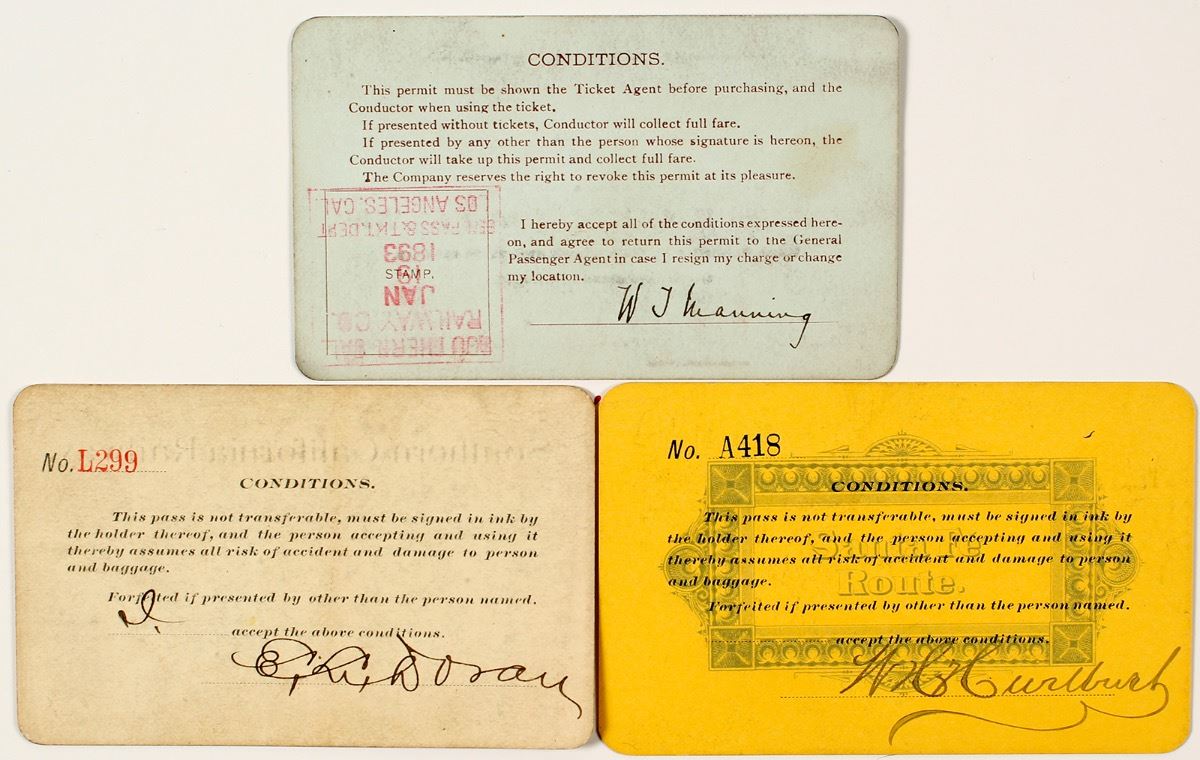 CONDITIONS.
This permit must be shown the Ticket Agent before purchasing, and the
Conductor when using the ticket.
If presented without tickets, Conductor will collect full fare.
If presented by any other than the person whose signature is hereon, the
Conductor will take up this permit and collect full fare.
The Company reserves the right to revoke this permit at its pleasure.
SOUTHERN CAL.
RAILWAY CO.
JAN
19
1893
GEN. PASS & TKT. DEPT
LOS ANGELES, CAL.
STAMP.
I hereby accept all of the conditions expressed here-
on, and agree to return this permit to the General
Passenger Agent in case I resign my charge or change
my location.
W J Manning
No. L299
CONDITIONS.
This pass is not transferable, must be signed in ink by
the holder thereof, and the person accepting and using it
thereby assumes all risk of accident and damage to person
and baggage.
Forfeited if presented by other than the person named.
I.
accept the above conditions.
Doran
No. A418
CONDITIONS.
This pass is not transferable, must be signed in ink by
the holder thereof, and the person accepting and using it
thereby assumes all risk of accident and damage to person
and baggage.
Forfeited if presented by other than the person named.
accept the above conditions.
Santa Fe
Route.